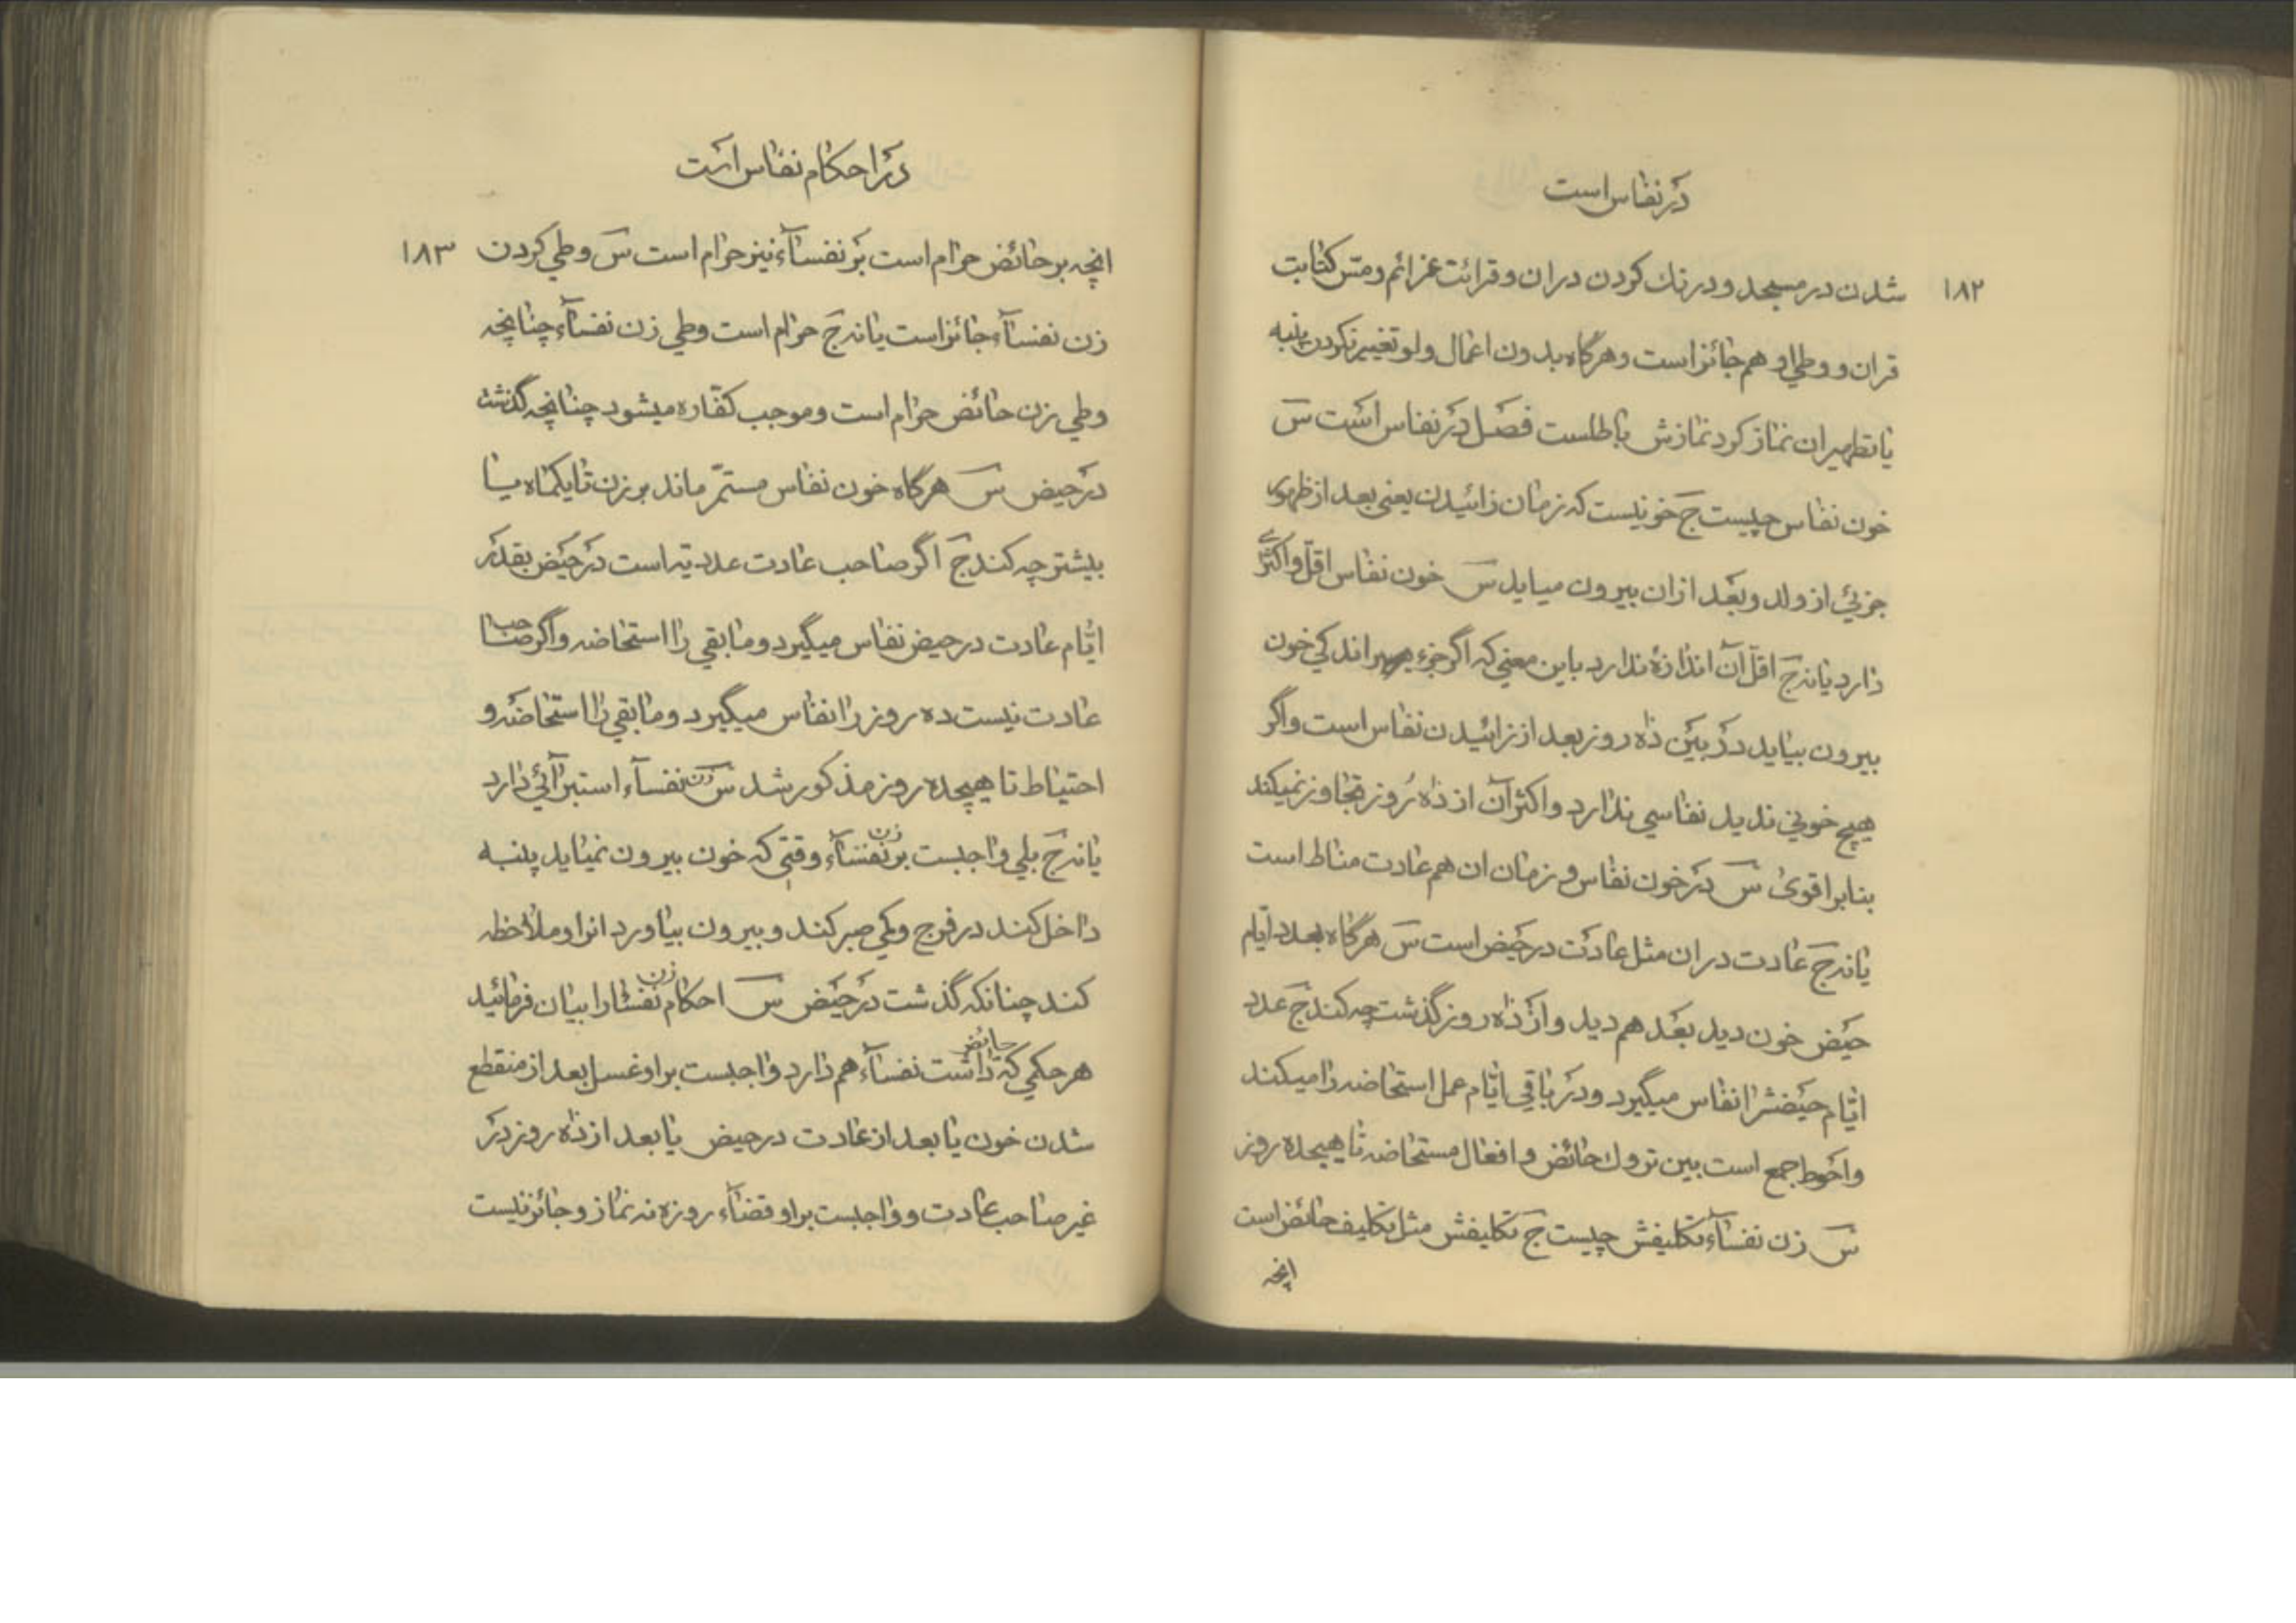 در نفاس است
۱۸۲
شدن در مسجد و درنك كردن دران و قرائت عزائم و مس كتابت
قران و وطي او هم جائز است و هرگاه بدون اعمال ولو تغيير نكردن پنبه
يا تطهيران نماز كرد نمازش باطلست فصل در نفاس است س
خون نفاس چيست ج خونيست كه زمان زائيدن يعني بعد از ظهور
جزئي از ولد و بعد ازان بيرون ميايد س خون نفاس اقل و اكثري
دارد يا نه ج اقل آن اندازۀ ندارد باين معني كه اگر جزء اندكي خون
بيرون بيايد در بين ده روز بعد از زائيدن نفاس است واگر
هيچ خوني نديد نفاسي ندارد و اكثر آن از ده روز تجاوز نميكند
بنابر اقوى س در خون نفاس و زمان ان هم عادت مناط است
يا نه ج عادت دران مثل عادت در حيض است س هرگاه بعدد ايام
حيض خون ديد بعد هم ديد و از ده روز گذشت چه كند ج عدد
ايّام حيضش را نفاس ميگيرد و در باقي ايّام عمل استحاضه را ميكند
و احوط جمع است بين تروك حائض و افعال مستحاضه تا هيجده روز
س زن نفسآء تكليفش چيست ج تكليفش مثل تكليف حائض است
انچه
در احكام نفاس است
۱۸۳
انچه بر حائض حرام است بر نفسآء نيز حرام است س وطي كردن
زن نفسآء جائز است يا نه ج حرام است وطي زن نفسآء چنانچه
وطي زن حائض حرام است و موجب كفّاره ميشود چنانچه گذشت
در حيض س هرگاه خون نفاس مستمرّ ماند بر زن تا يكماه يا
بيشتر چه كند ج اگر صاحب عادت عدديه است در حيض بقدر
ايّام عادت در حيض نفاس ميگيرد و مابقي را استحاضه و اگر صاحب
عادت نيست ده روز را نفاس ميگيرد و مابقي را استحاضه و
احتياط تا هيجده روز مذكور شد س زن نفسآء استبرائي دارد
يا نه ج بلي واجبست بر زن نفسآء وقتي كه خون بيرون نميايد پنبه
داخل كند در فرج و كمي صبر كند و بيرون بياورد انرا و ملاحظه
كند چنانكه گذشت در حيض س احكام زن نفسا را بيان فرمائيد
هر حكمي كه حائض داشت نفسآء هم دارد واجبست بر او غسل بعد از منقطع
شدن خون يا بعد از عادت در حيض يا بعد از ده روز در
غير صاحب عادت و واجبست بر او قضآء روزه نه نماز و جائز نيست